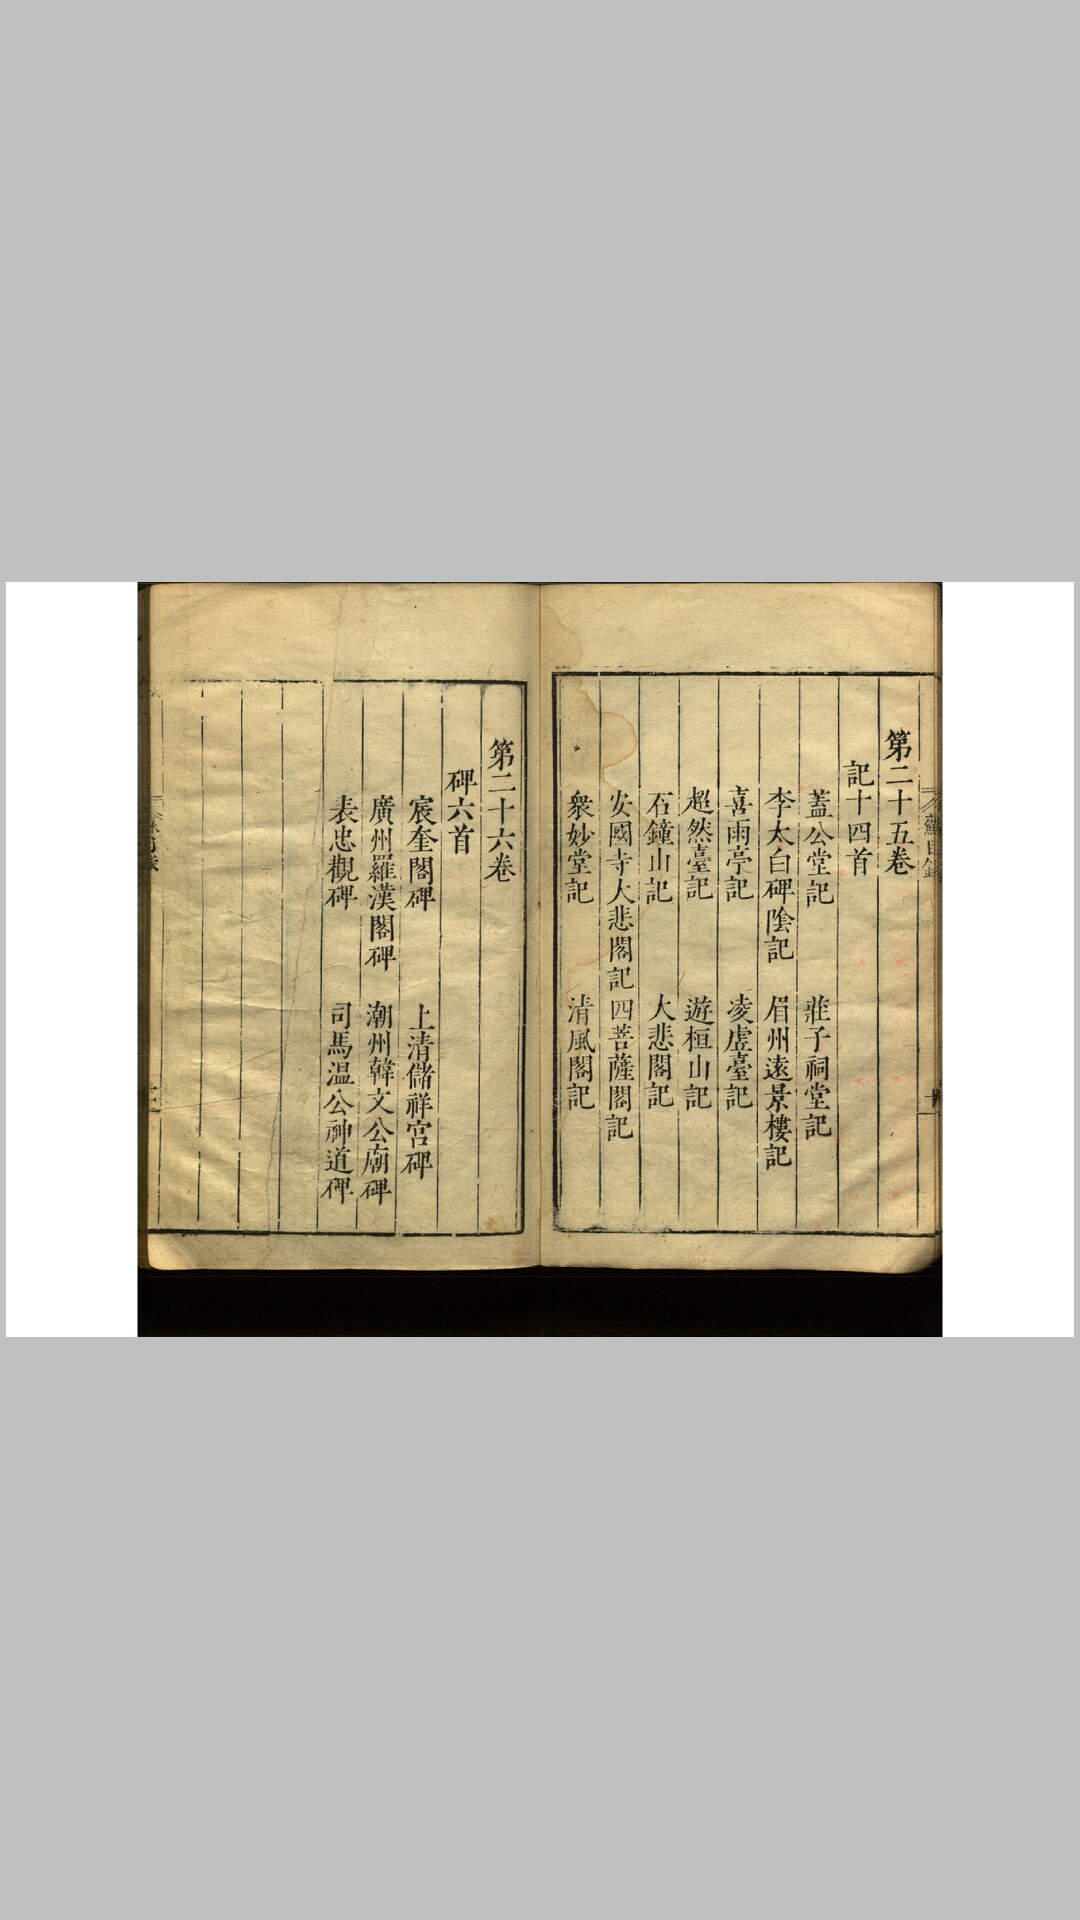 蘇目錄
第二十五卷
記十四首
蓋公堂記 莊子祠堂記
李太白碑陰記 眉州遠景樓記
喜雨亭記 凌虛臺記
超然臺記 遊桓山記
石鐘山記 大悲閣記
安國寺大悲閣記 四菩薩閣記
衆妙堂記 清風閣記
第二十六卷
碑六首
宸奎閣碑 上清儲祥宮碑
廣州羅漢閣碑 潮州韓文公廟碑
表忠觀碑 司馬温公神道碑